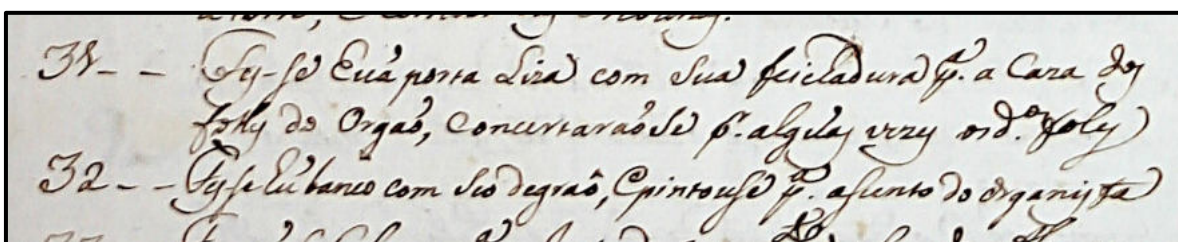 31 - - Fes-se huã porta Liza com sua feicladura pª. a Caza dos
folles do Orgaõ, Concertaraõse pr. algũas vezes os dos. foles
32 - - Fesse hũ banco com seo degraõ, e pintouse pª. asunto do organista